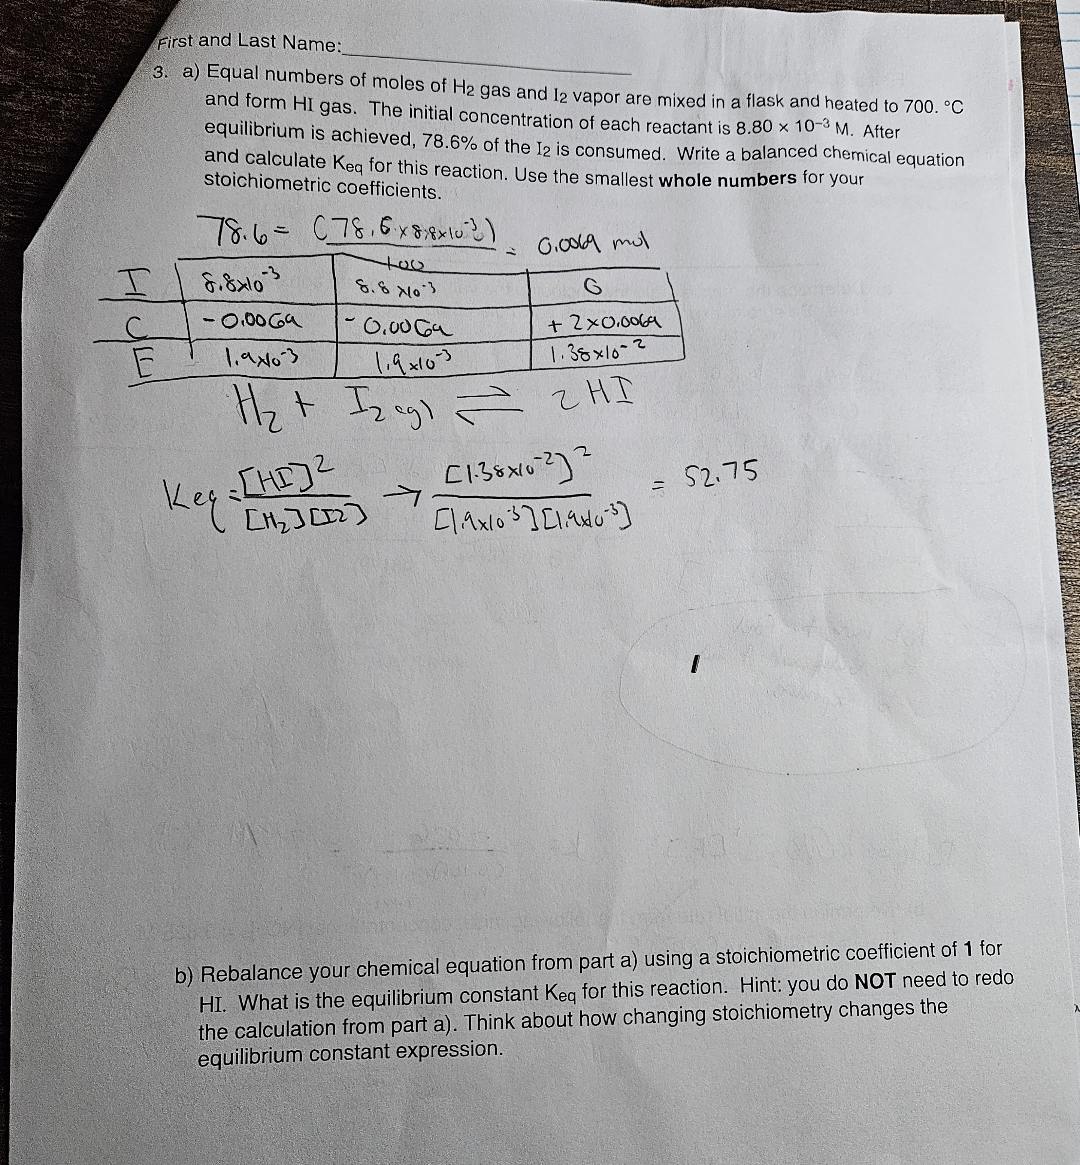 First and Last Name:
3. a) Equal numbers of moles of H2 gas and I2 vapor are mixed in a flask and heated to 700. °C
and form HI gas. The initial concentration of each reactant is 8.80 × 10⁻³ M. After
equilibrium is achieved, 78.6% of the I2 is consumed. Write a balanced chemical equation
and calculate Keq for this reaction. Use the smallest whole numbers for your
stoichiometric coefficients.
78.6 = (78.6 x 8.8x10⁻³) / 100 = 0.0069 mol
I 8.8x10⁻³ 8.8 x10⁻³ 0
C - 0.0069 - 0.0069 + 2x0.0069
E 1.9x10⁻³ 1.9x10⁻³ 1.38x10⁻²
H₂ + I₂ (g) ⇌ 2 HI
Keq = [HI]² / [H₂][I2] → [1.38x10⁻²]² / [1.9x10⁻³][1.9x10⁻³] = 52.75
b) Rebalance your chemical equation from part a) using a stoichiometric coefficient of 1 for
HI. What is the equilibrium constant Keq for this reaction. Hint: you do NOT need to redo
the calculation from part a). Think about how changing stoichiometry changes the
equilibrium constant expression.